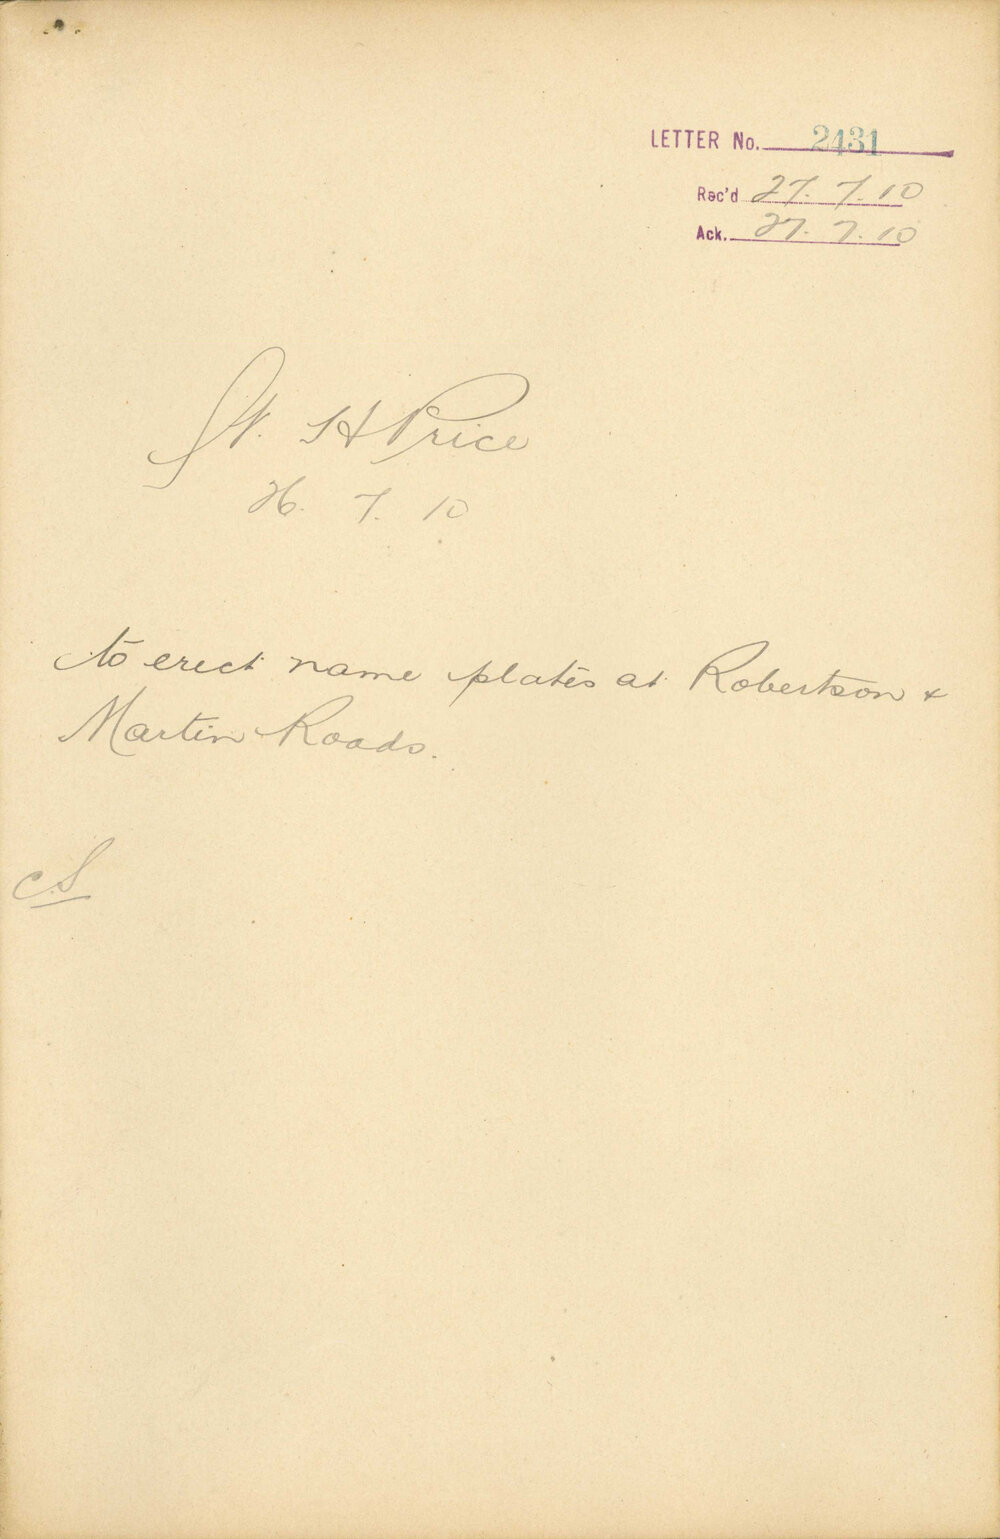 LETTER No. 2431
Rec'd 27. 7. 10
Ack. 27. 7. 10
W. H Price
26. 7. 10
to erect name plates at Robertson &
Martin Roads.
C.S